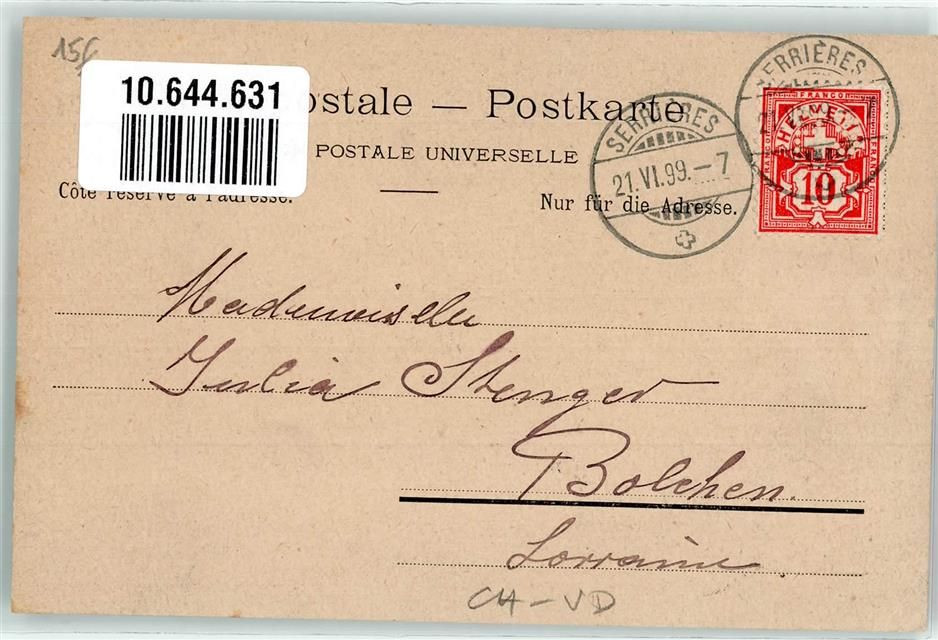 15.-
10.644.631
ostale — Postkarte
POSTALE UNIVERSELLE
Côte réservé à l'adresse.
Nur für die Adresse.
SERRIÈRES
21.VI.99.–7
SERRIÈRES
FRANCO
HELVETIA
10
Mademoiselle
Julia Stenger
Bolchen.
Lorraine
CH-VD